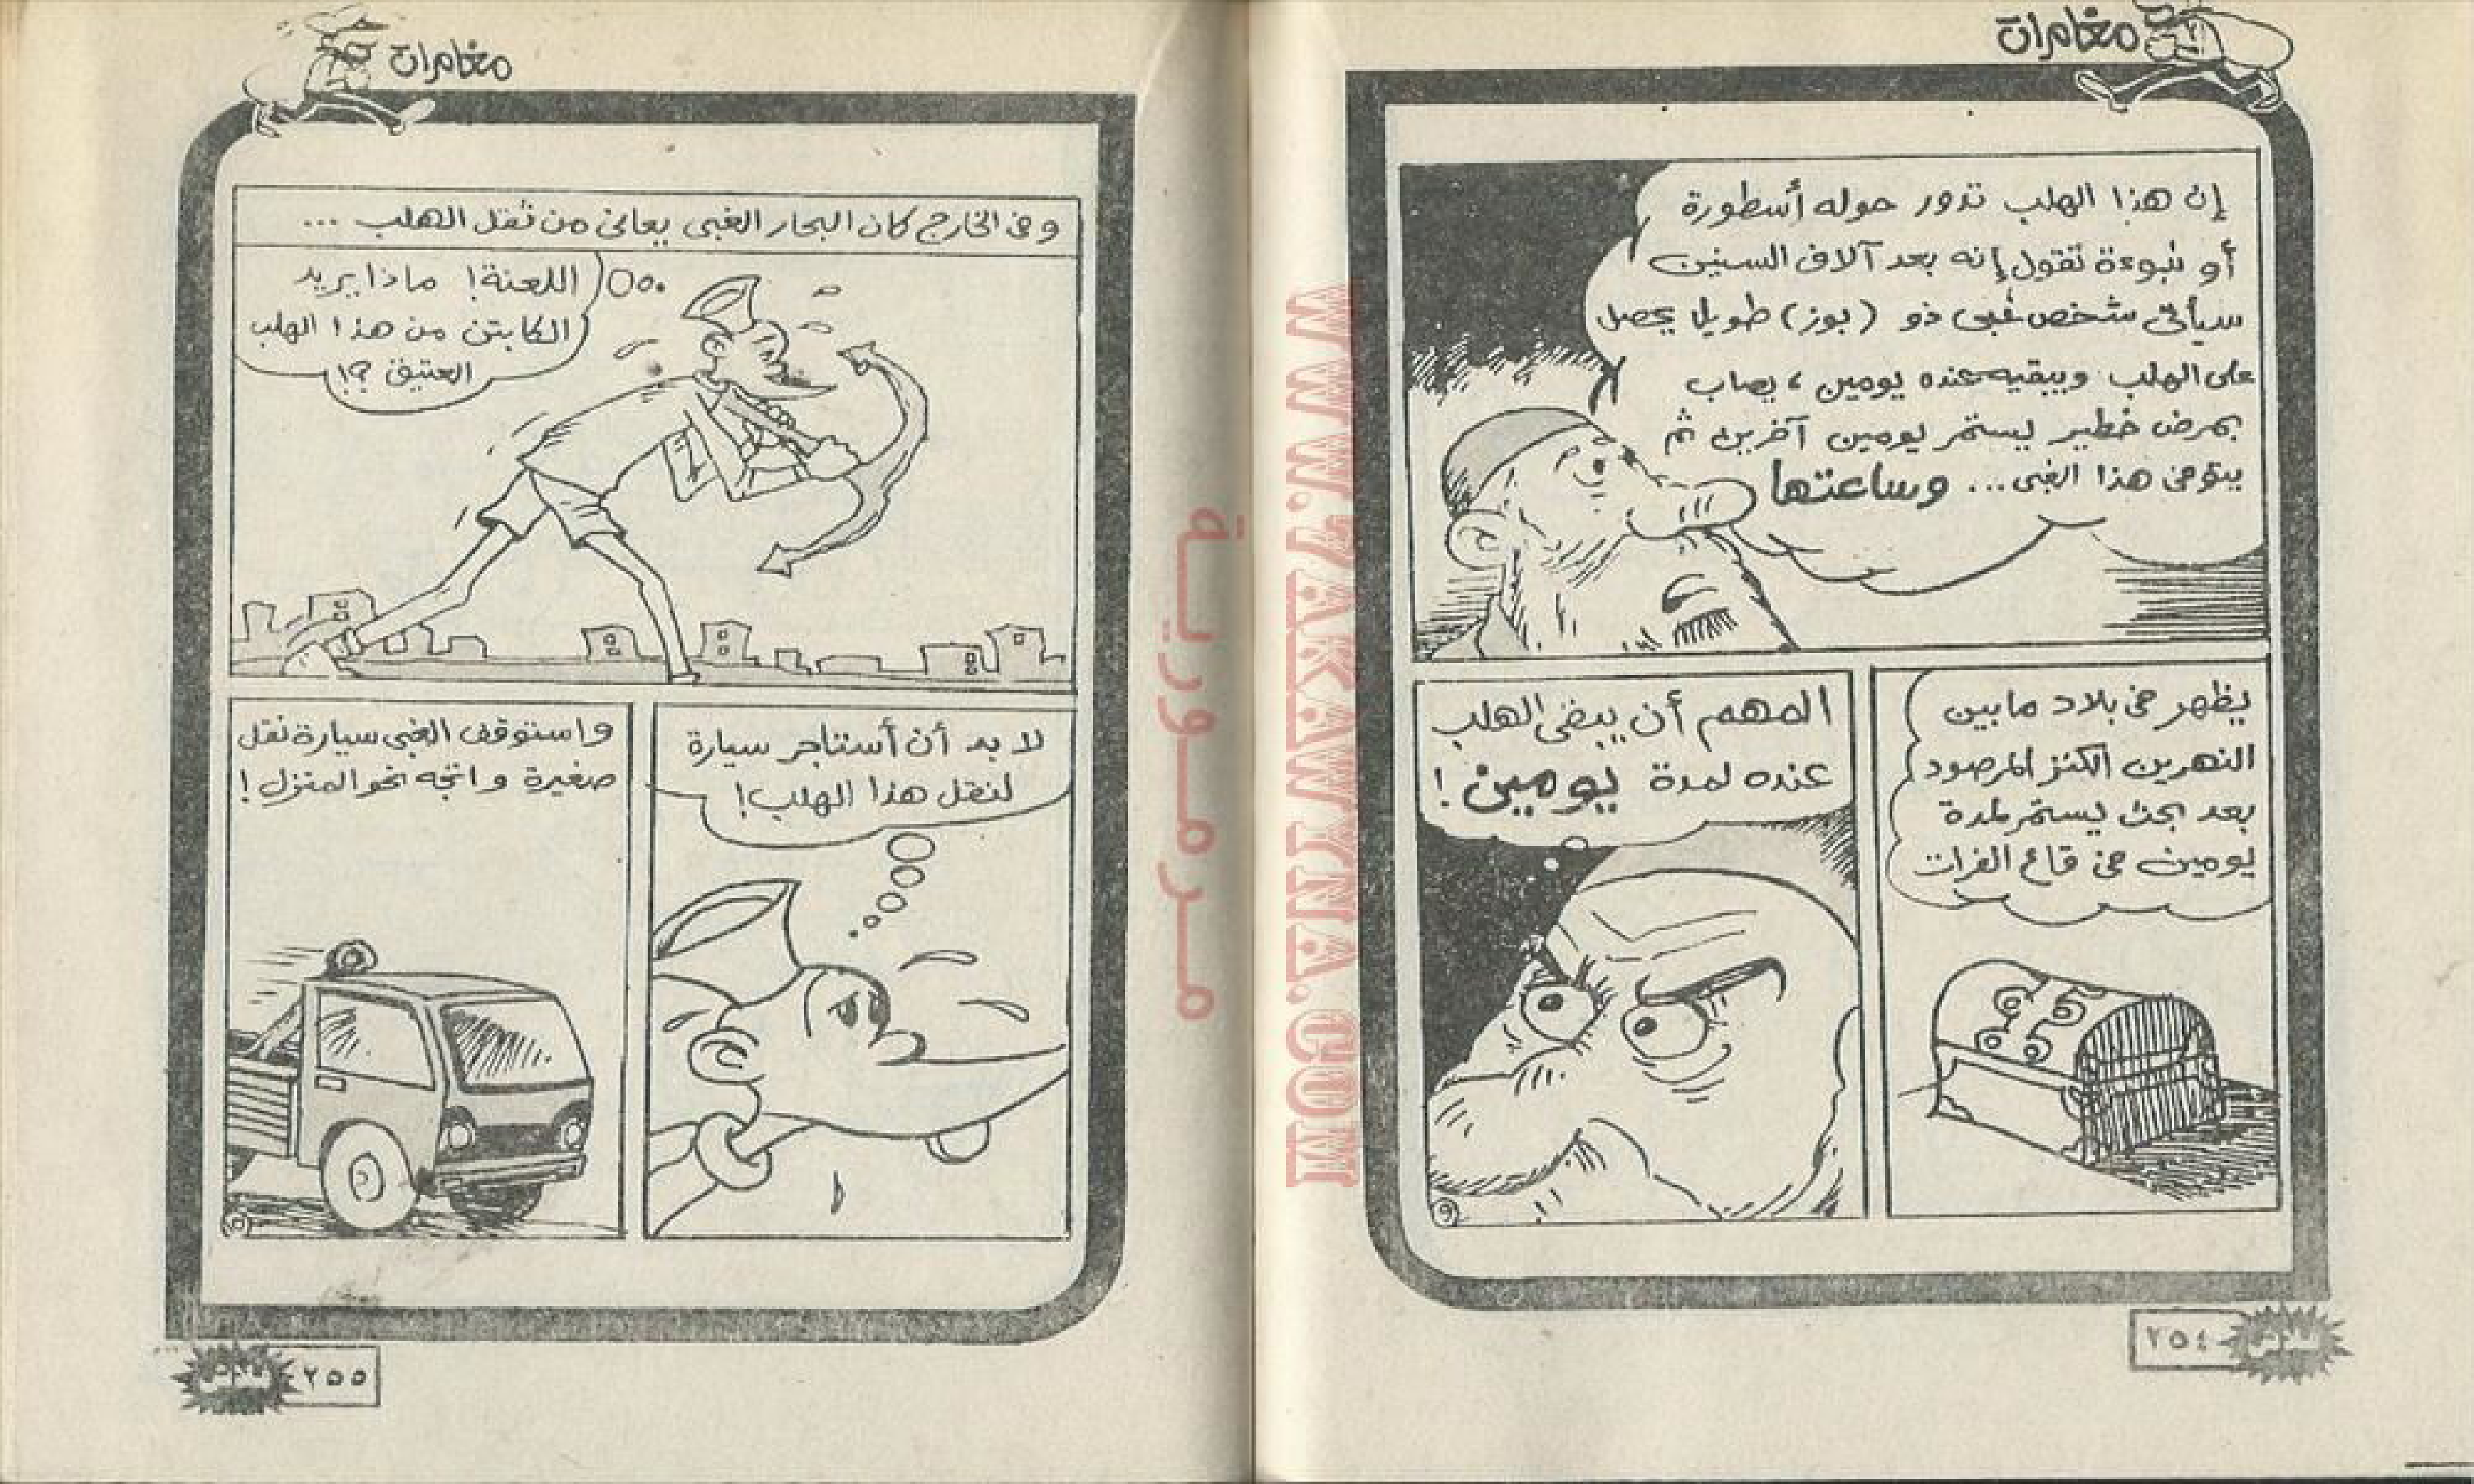 مغامرات
إن هذا الهلب تدور حوله أسطورة
أو نبوءة تقول إنه بعد آلاف السنين
سيأتى شخص غبى ذو (بوز) طويل يحصل
على الهلب ويبقيه عنده يومين ، يصاب
بمرض خطير ليستمر يومين آخرين ثم
يتوفى هذا الغبى... وساعتها
يظهر فى بلاد ما بين
النهرين الكنز المرصود
بعد بحث ليستمر لمدة
يومين فى قاع الفرات
المهم أن يبقى الهلب
عنده لمدة يومين !
٩
٢٥٤
مغامرات
وفى الخارج كان البحار الغبى يعانى من ثقل الهلب ...
اللعنة! ماذا يريد
الكابتن من هذا الهلب
العتيق ؟!
لا بد أن أستأجر سيارة
لنقل هذا الهلب!
واستوقف الغبى سيارة نقل
صغيرة واتجه نحو المنزل !
٢٥٥
مرمورية
WWW.7AKAWYNA.COM